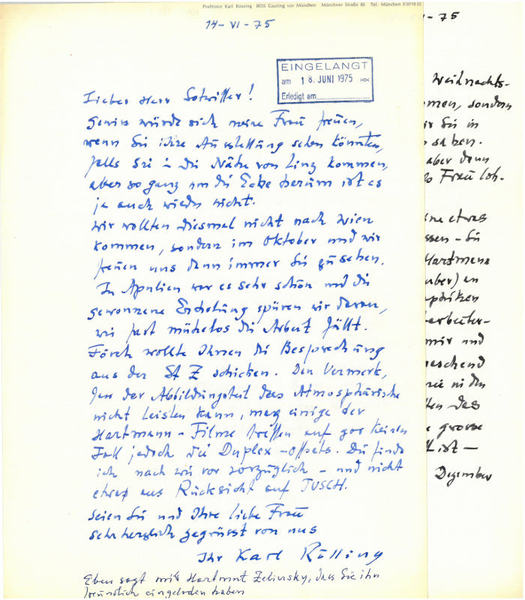 Professor Karl Rössing 8035 Gauting vor München Münchner Straße
14-VI-75
EINGELANGT
am 18. JUNI 1975
Erledigt am
Lieber Herr
Gewiss würde sich meine Frau freuen,
wenn Sie ihre Ausstellung sehen könnten,
falls Sie in die Nähe von Linz kommen,
aber so ganz um die Ecke herum ist es
ja auch wieder nicht.
Wir wollten diesmal nicht nach Wien
kommen, sondern im Oktober und wir
freuen uns dann immer Sie zu sehen.
In Apulien war es sehr schön und die
gewonnene Erholung spüren wir daran,
wie fast mühelos die Arbeit fällt.
wollte Ihnen die Besprechung
aus der St Z schicken. Den Vermerk,
den der Abbildungsteil das Atmosphärische
nicht leisten kann, mag einige der
Hartmann-Filme treffen auf gar keinen
Fall jedoch die Duplex-Offsets. Die finde
ich nach wie vor vorzüglich - und nicht
etwa aus Rücksicht auf TUSCH.
Seien Sie und Ihre liebe Frau
sehr herzlich gegrüsst von uns
Ihr Karl Rössing
Eben sagt mir Hartmut Zelinsky, dass Sie ihn
freundlich eingeladen haben
-75
Weihnachts-
men, sondern
Sie in
sehen.
aber dann
Frau Loh-
ine etwas
ssen - Sie
Hartmanns
uber) an
arbeiter-
mir und
den
das
grosse
ist -
Dezember